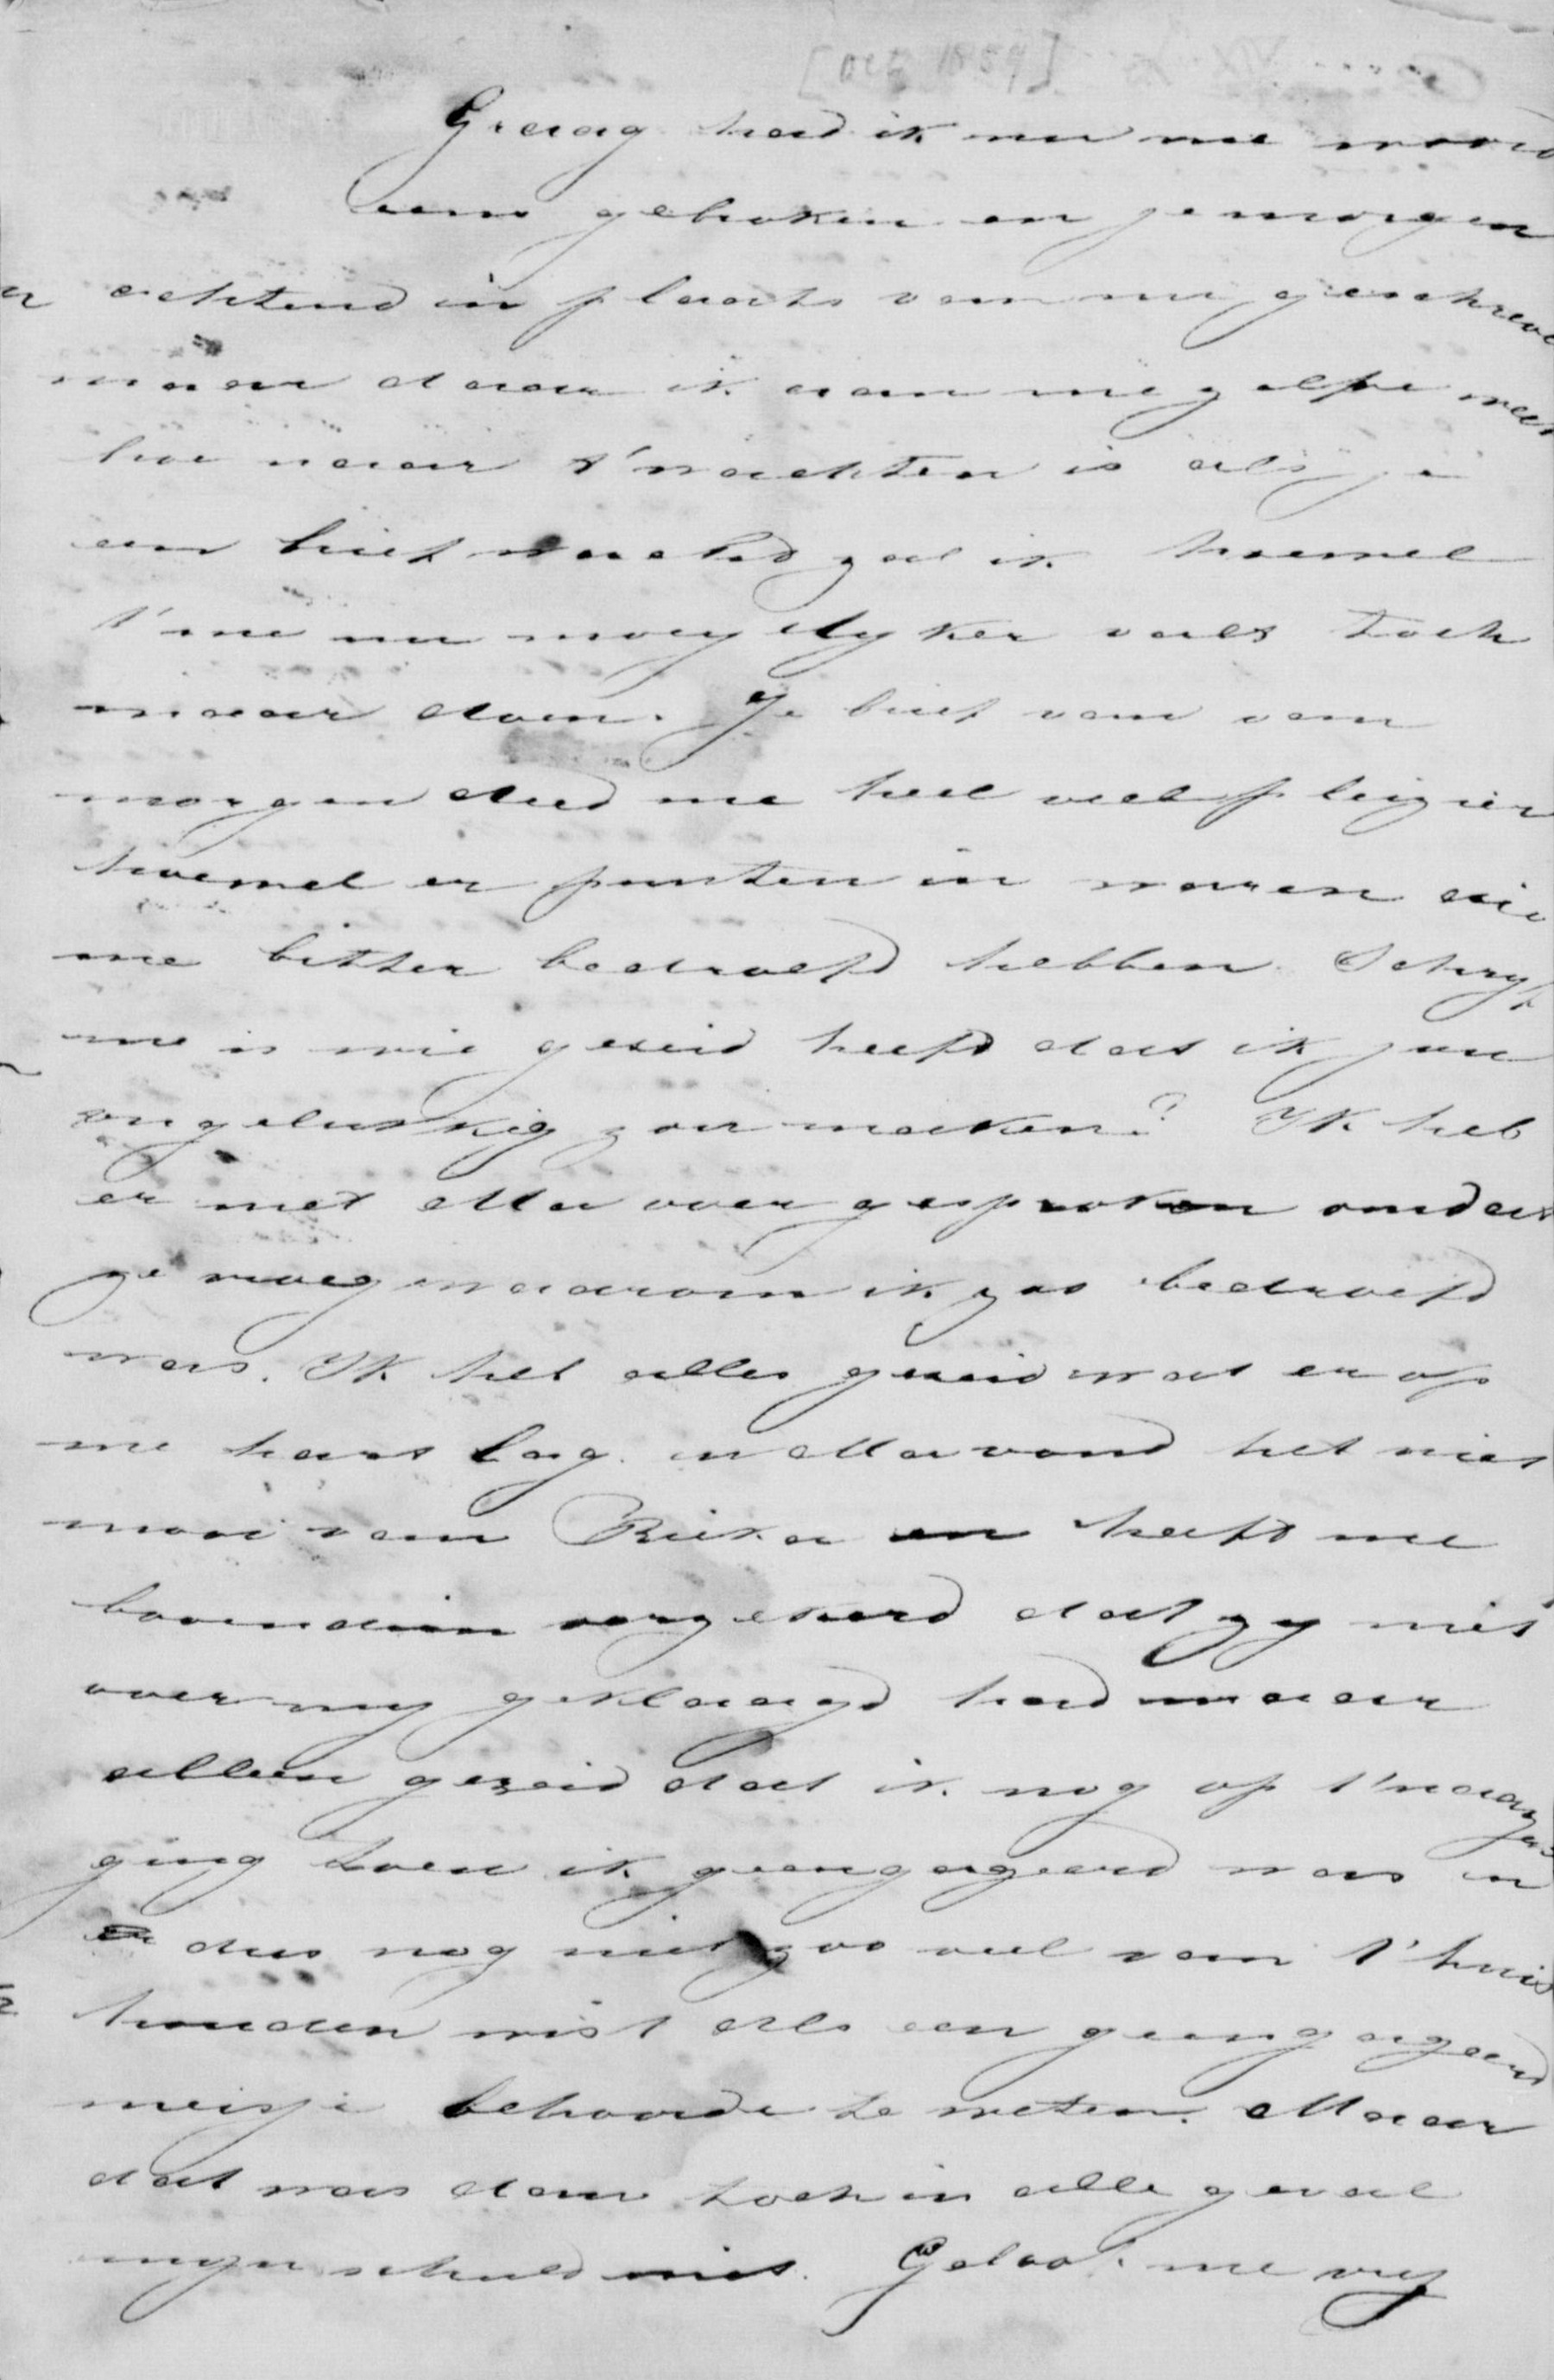 Graag had ik nu me woord
eens gebroken en je morgen
achtend in plaats van nu geschreve
maar daar ik aan me zelfe weet
hoe naar t'wachten is als je
een brief wacht zal ik hoewel
t'me nu moeylyker valt toch
maar doen. Je brief van van
morgen deed me heel veel pleizier
hoewel er punten in waren die
me bitter bedroefd hebben. Schryf
me is wie gezeid heefd dat ik jou
ongelukkig zou maken? Ik heb
er met Ma over gesproken omdat
ze vroeg waarom ik zoo bedroefd
was. Ik heb alles gezeid wat er op
me hart lag. en Ma vond het niet
mooi van Rika en heeft me
bovendien verzekerd dat zy niet
over my geklaagd had maar
alleen gezeid dat ik nog op t'naaijen
ging toen ik geengageerd was en
dus nog niet zoo veel van t'huis
houden wist als een geengageerd
meisje behoorde te weten. Maar
dat was dan toch in alle geval
myn schuld niet. Geloof me vry